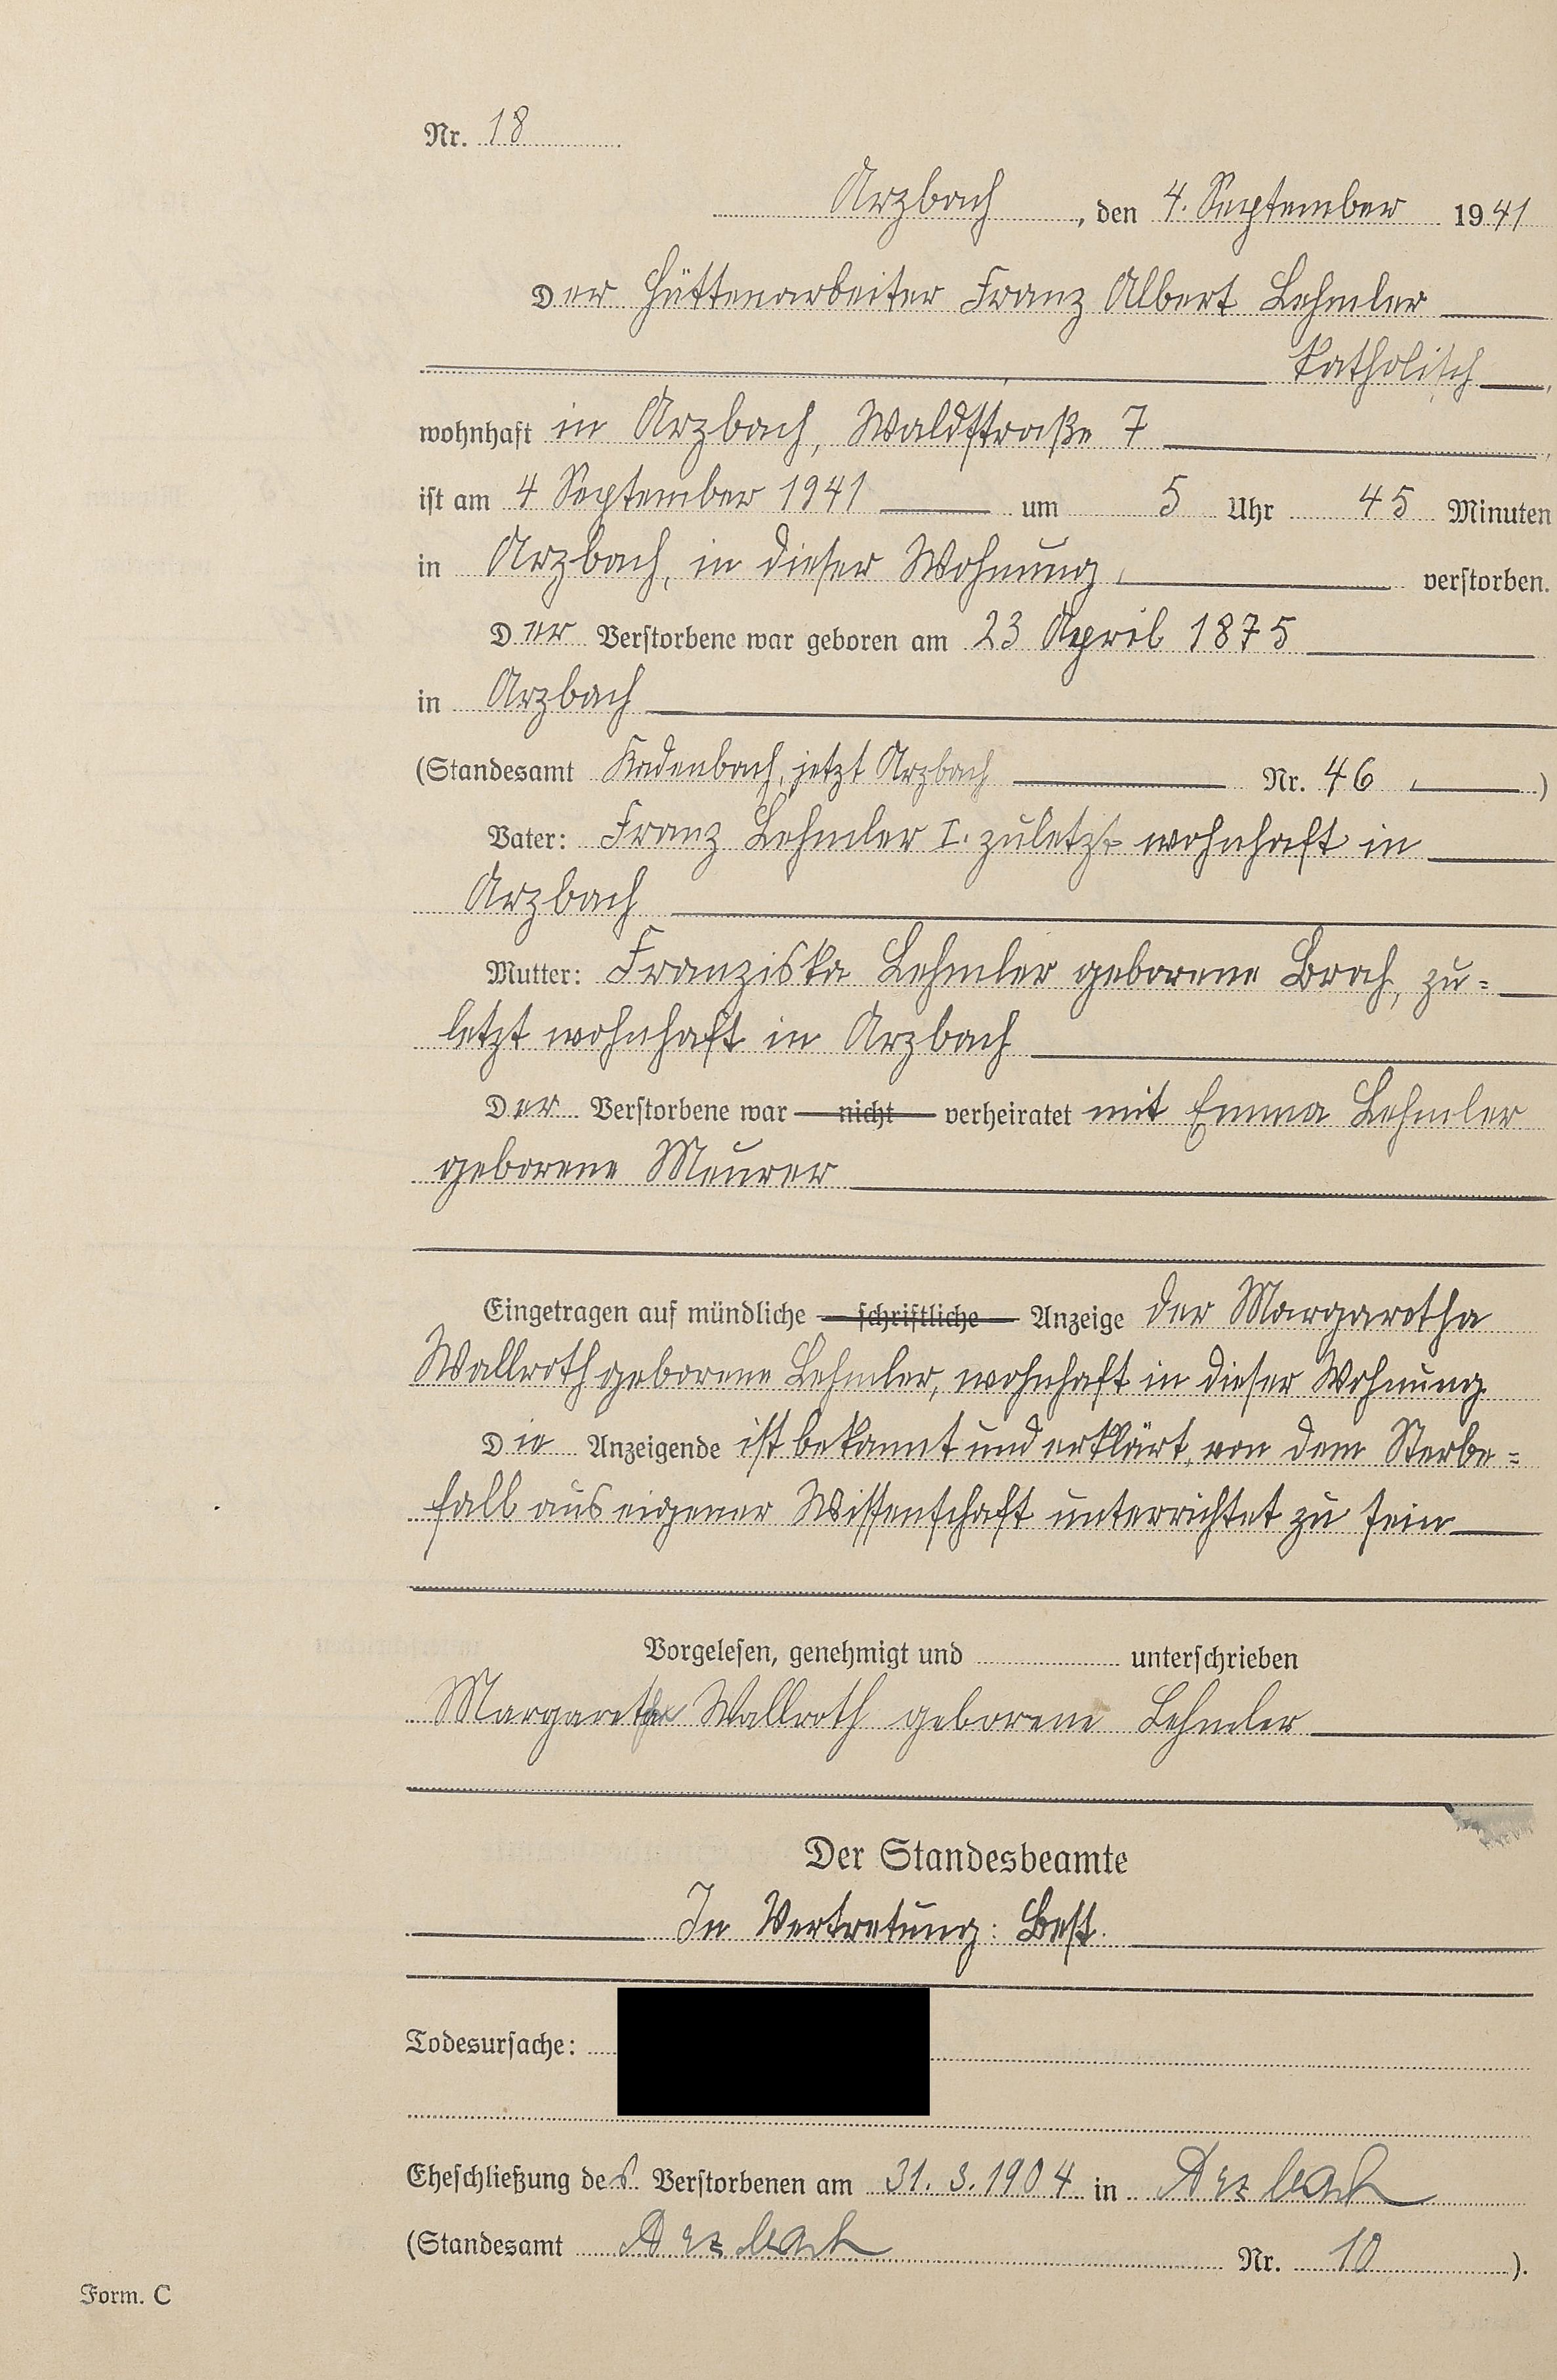 Nr. 18
Arzbach, den 4. September 1941
Der Hüttenarbeiter Franz Albert Lehmler
katholisch,
wohnhaft in Arzbach, Waldstraße 7
ist am 4 September 1941 um 5 Uhr 45 Minuten
in Arzbach, in dieser Wohnung, verstorben.
Der Verstorbene war geboren am 23 April 1875
in Arzbach
(Standesamt Kadenbach, jetzt Arzbach Nr. 46)
Vater: Franz Lehmler I. zuletzt wohnhaft in
Arzbach
Mutter: Franziska Lehmler geborene Brach, zu=
letzt wohnhaft in Arzbach
Der Verstorbene war — nicht — verheiratet mit Emma Lehmler
geborene Meurer
Eingetragen auf mündliche — schriftliche — Anzeige der Margaretha
Wallroth geborene Lehmler, wohnhaft in dieser Wohnung.
Die Anzeigende ist bekannt und erklärt, von dem Sterbe=
fall aus eigener Wissenschaft unterrichtet zu sein
Vorgelesen, genehmigt und unterschrieben
Margaretha Wallroth geborene Lehmler
Der Standesbeamte
In Vertretung: Best.
Todesursache:
Eheschließung des Verstorbenen am 31. 3. 1904 in Arzbach
(Standesamt Arzbach Nr. 10).
Form. C